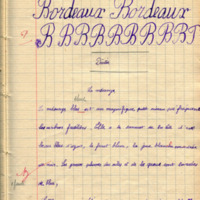 Bordeaux Bordeaux
9 B B B B B B B B B
Dictée
La mésange
bleue
La mésange bleue est un magnifique petit oiseau qui fréquente
les jardins fruitiers. Elle a le sommet de la tête et
les ailes d'azur, le front blanc, les joues blanches
de noir. Les grosses plumes des ailes et de la queue sont bordées
de bleu.